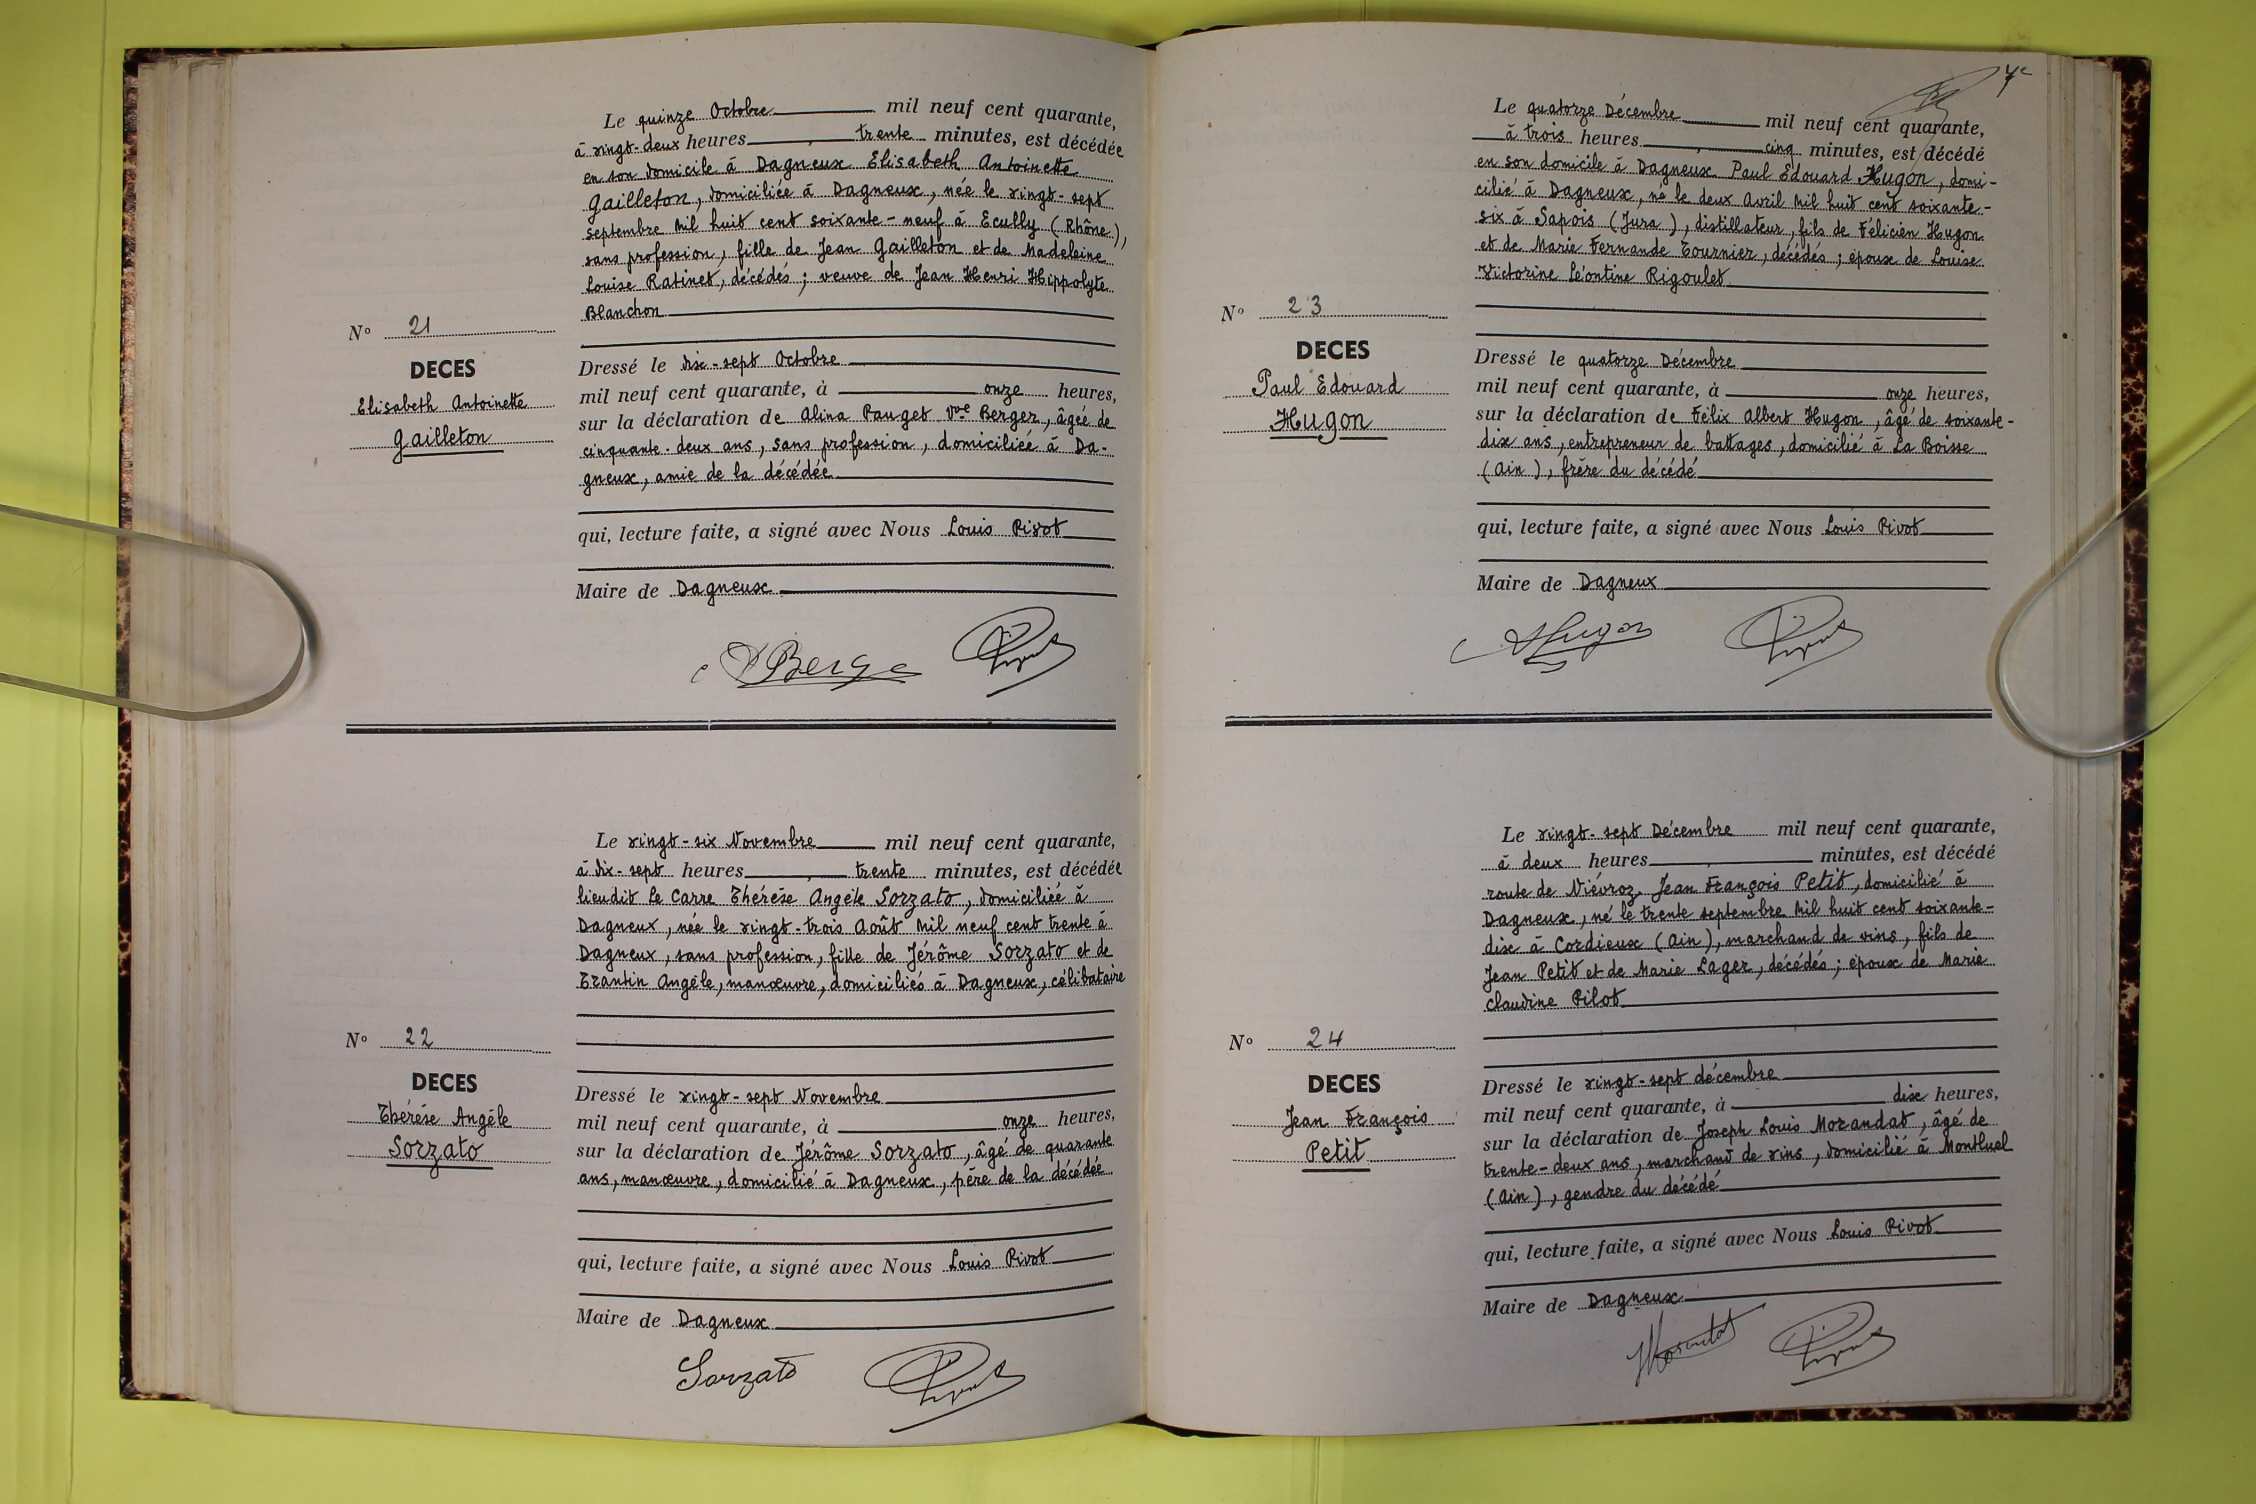 Le quinze Octobre mil neuf cent quarante,
à vingt-deux heures trente minutes, est décédée
en son domicile à Dagneux Elisabeth Antoinette
Gailleton, domiciliée à Dagneux, née le vingt-sept
septembre mil huit cent soixante-neuf à Ecully (Rhône),
sans profession, fille de Jean Gailleton et de Madeleine
Louise Ratinet, décédés ; veuve de Jean Henri Hippolyte
Blanchon
N° 21
DECES
Elisabeth Antoinette
Gailleton
Dressé le dix-sept Octobre
mil neuf cent quarante, à onze heures,
sur la déclaration de Alina Pauget Vve Berger, âgée de
cinquante-deux ans, sans profession, domiciliée à Da-
gneux, amie de la décédée
qui, lecture faite, a signé avec Nous Louis Pivot
Maire de Dagneux
Le vingt-six Novembre mil neuf cent quarante,
à dix-sept heures trente minutes, est décédée
lieudit le Carre Thérèse Angèle Sorzato, domiciliée à
Dagneux, née le vingt-trois Août mil neuf cent trente à
Dagneux, sans profession, fille de Jérôme Sorzato et de
Trantin Angèle, manœuvre, domiciliés à Dagneux, célibataire
N° 22
DECES
Thérèse Angèle
Sorzato
Dressé le vingt-sept Novembre
mil neuf cent quarante, à onze heures,
sur la déclaration de Jérôme Sorzato, âgé de quarante
ans, manœuvre, domicilié à Dagneux, père de la décédée
qui, lecture faite, a signé avec Nous Louis Pivot
Maire de Dagneux
Sorzato
Le quatorze Décembre mil neuf cent quarante,
à trois heures cinq minutes, est décédé
en son domicile à Dagneux Paul Edouard Hugon, domi-
cilié à Dagneux, né le deux Avril mil huit cent soixante-
six à Sapois (Jura), distillateur, fils de Félicien Hugon
et de Marie Fernande Tournier, décédés ; époux de Louise
Victorine Léontine Rigoulet
N° 23
DECES
Paul Edouard
Hugon
Dressé le quatorze Décembre
mil neuf cent quarante, à onze heures,
sur la déclaration de Félix Albert Hugon, âgé de soixante-
dix ans, entrepreneur de battages, domicilié à La Boisse
(Ain), frère du décédé
qui, lecture faite, a signé avec Nous Louis Pivot
Maire de Dagneux
Hugon
Le vingt-sept Décembre mil neuf cent quarante,
à deux heures minutes, est décédé
route de Niévroz Jean François Petit, domicilié à
Dagneux, né le trente septembre mil huit cent soixante-
dix à Cordieux (Ain), marchand de vins, fils de
Jean Petit et de Marie Lager, décédés ; époux de Marie
Claudine Pilot
N° 24
DECES
Jean François
Petit
Dressé le vingt-sept décembre
mil neuf cent quarante, à dix heures,
sur la déclaration de Joseph Louis Morandat, âgé de
trente-deux ans, marchand de vins, domicilié à Montluel
(Ain), gendre du décédé
qui, lecture faite, a signé avec Nous Louis Pivot
Maire de Dagneux